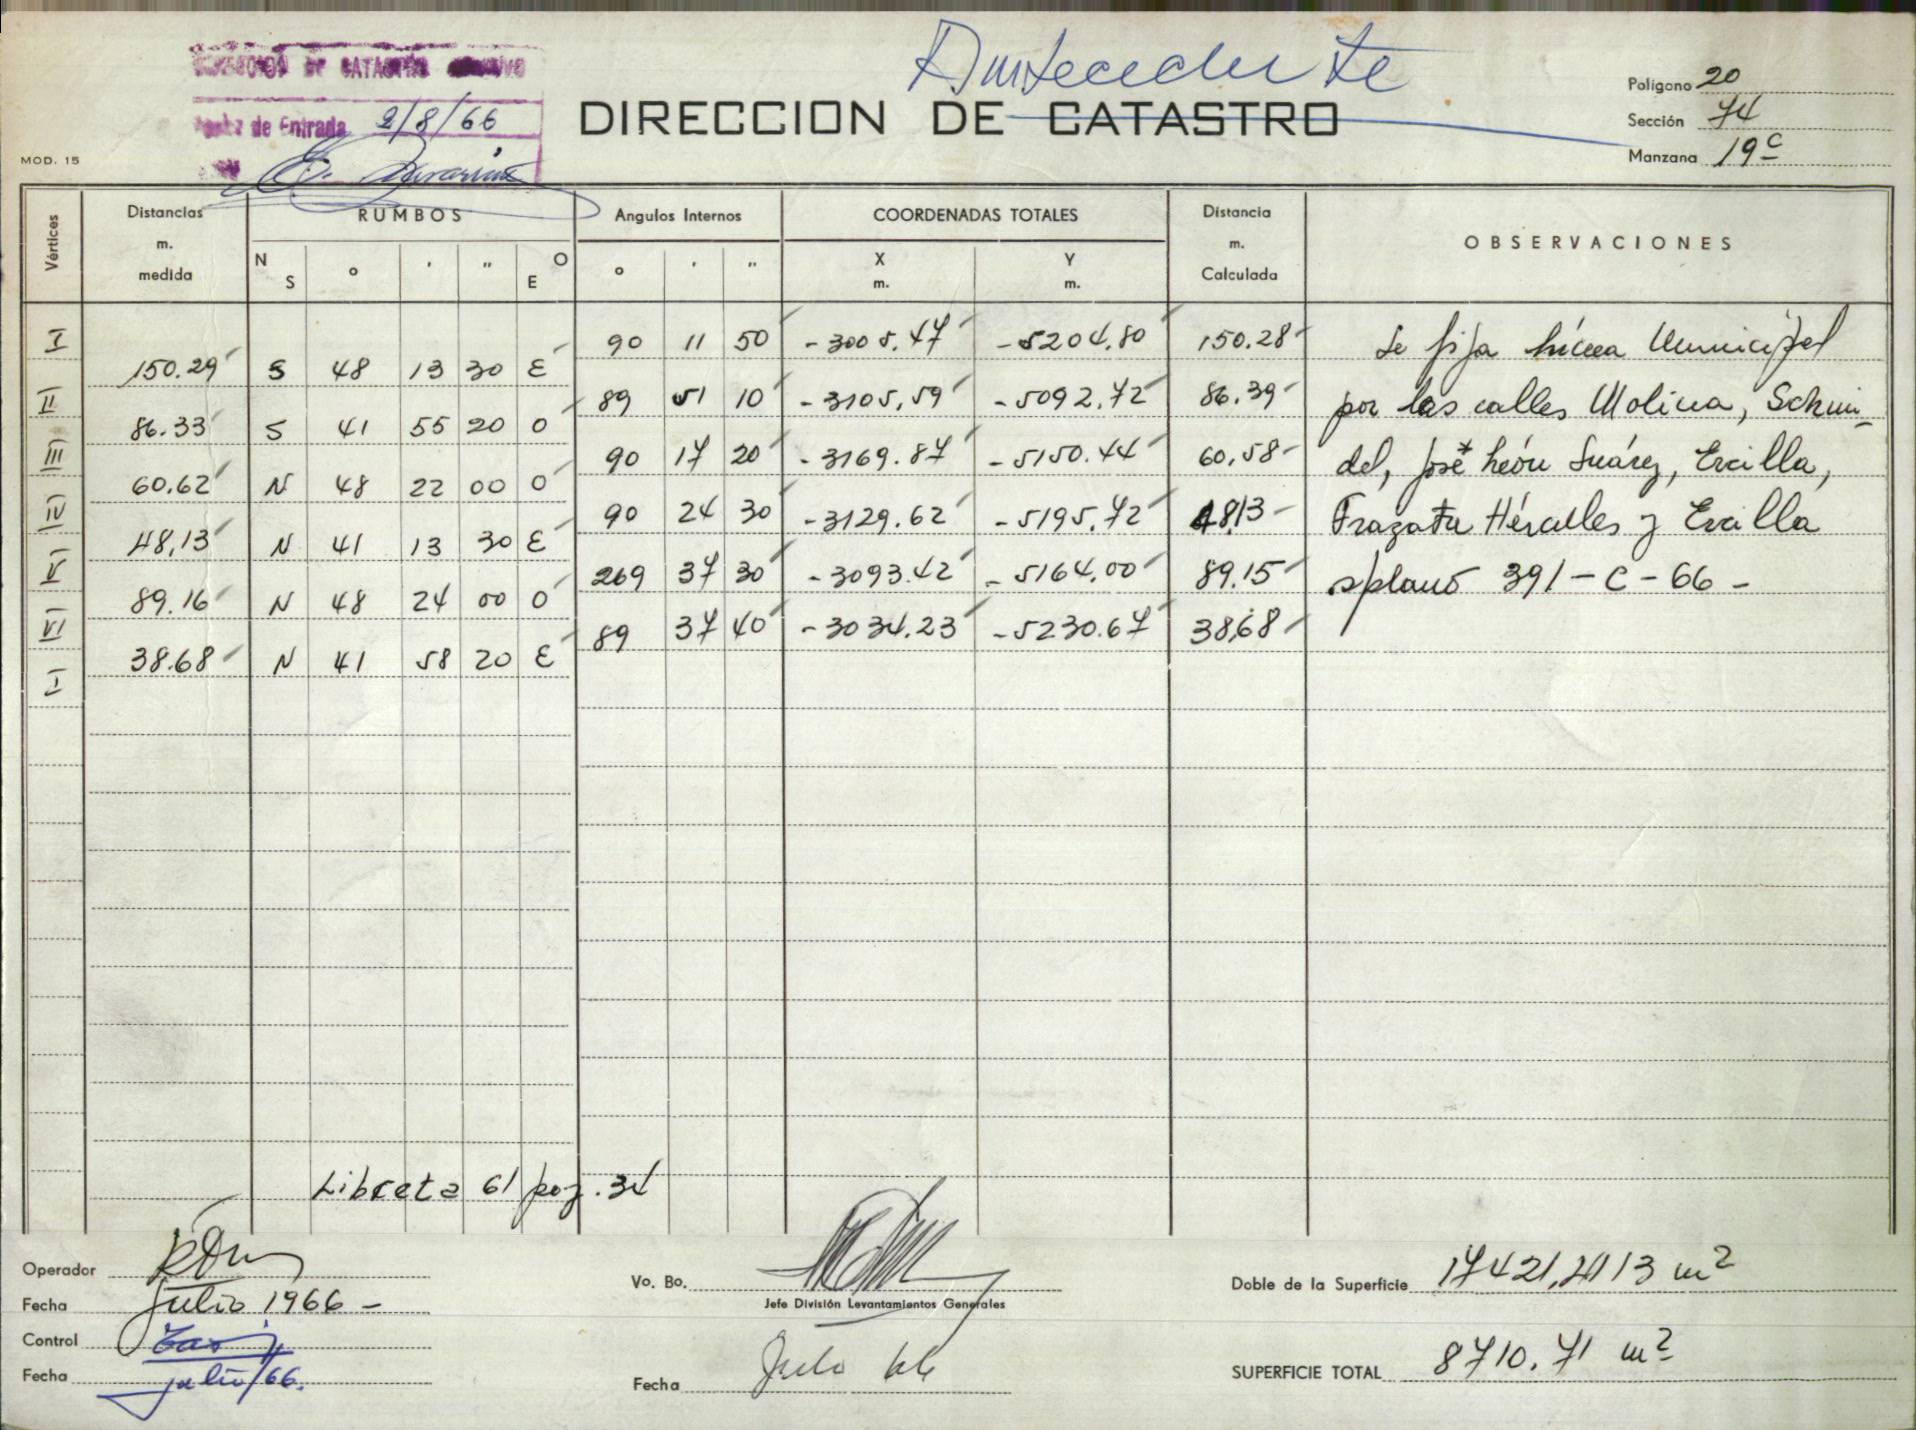 DE CATASTRO
de Entrada 2/8/66
Antecedente
DIRECCION DE CATASTRO
Polígono 20
Sección 74
Manzana 19c
MOD. 15
Vértices Distancias m. medida RUMBOS Angulos Internos COORDENADAS TOTALES Distancia m. Calculada OBSERVACIONES
N S ° ' " O E ° ' " X m. Y m.
I 90 11 50 -3005.47 -5204.80 150.28 Se fija Línea Municipal
150.29 S 48 13 30 E
II 89 51 10 -3105,59 -5092.72 86.39 por las calles Molina, Schmi-
86.33 S 41 55 20 O
III 90 17 20 -3169.87 -5150.44 60,58 del, José León Suárez, Ercilla,
60.62 N 48 22 00 O
IV 90 24 30 -3129.62 -5195.72 48,13 Fragata Hércules y Ercilla
48,13 N 41 13 30 E
V 269 37 30 -3093.42 -5164.00 89.15 s/plano 391-C-66-
89.16 N 48 24 00 O
VI 89 37 40 -3034.23 -5230.67 38,68
38.68 N 41 58 20 E
I
Libreta 61 pag. 34
Operador
Fecha Julio 1966 -
Control
Fecha julio/66.
Vo. Bo.
Jefe División Levantamientos Generales
Fecha Julio 66
Doble de la Superficie 17421,4113 m2
SUPERFICIE TOTAL 8710.71 m2